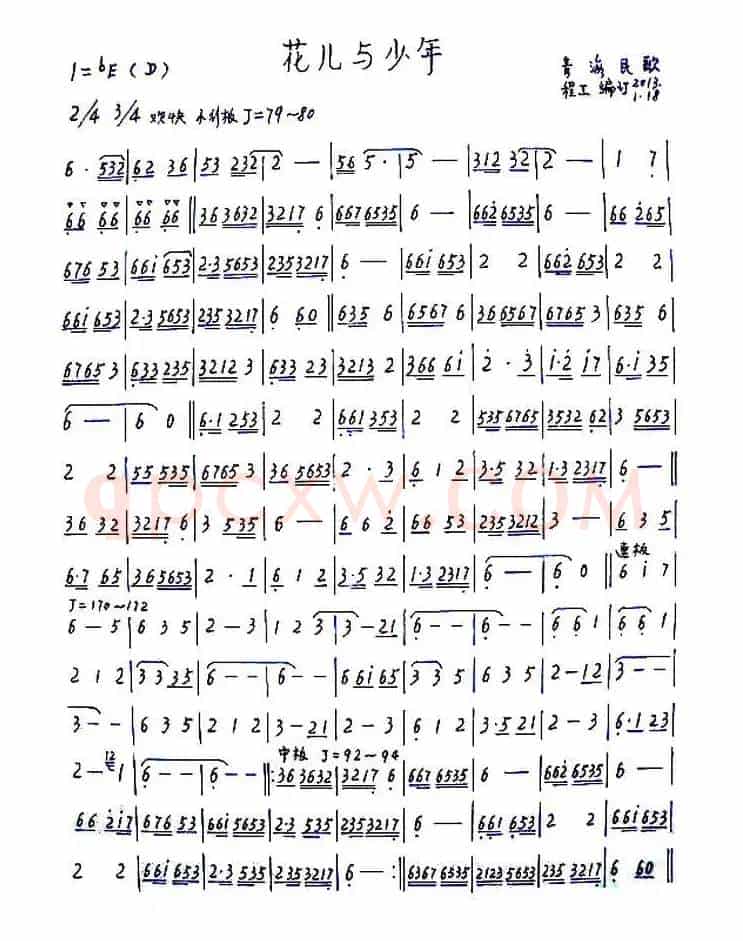 花儿与少年
1=♭E (D)
青海民歌
程工 编订 2013.1.18
2/4 3/4 欢快 小行板 J=79~80
6·532|62 36|53 232|2 —|56 5·|5 —|312 32|2 —|1 7|
66 66|66 66‖363632|3217 6|6676535|6 —|6626535|6 —|66 265|
676 53|661653|2·35653|2353217|6 —|661653|2 2|662653|2 2|
661653|2·35653|2353217|6 60‖635 6|6567 6|366567|6765 3|635 6|
6765 3|633235|3212 3|633 23|3213 2|366 61|2·3|1·2 17|6·1 35|
6 —|6 0‖6·1253|2 2|661353|2 2|5356765|3532 62|3 5653|
2 2|55 535|6765 3|36 5653|2·3|6 1 2|3·5 32|1·32317|6 —‖
36 32|3217 6|3 535|6 —|6 6 2|66 53|2353212|3 —|6 3 5|
6·7 65|365653|2·1|6 1 2|3·5 32|1·32317|6 —|6 0‖6 1 7|
J=170~172
6—5|6 3 5|2—3|1 2 3|3—21|6——|6——|6 6 1|6 6 1|
2 1 2|3 3 35|6——|6——|6 6165|3 3 5|6 3 5|2—12|3——|
3——|6 3 5|2 1 2|3—21|2—3|6 1 2|3·5 21|2—3|6·1 23|
中板 J=92~94
2—1|6——|6——‖:363632|3217 6|6676535|6 —|6626535|6 —|
66 217|676 53|6615653|2·3 535|2353217|6 —|661653|2 2|661653|
2 2|661653|2·3 535|2353217|6—:‖63676535|21235653|2353217|6 60‖
qpcxw.COM